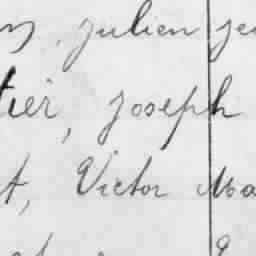 julien
tier, joseph
t, Victor Ma